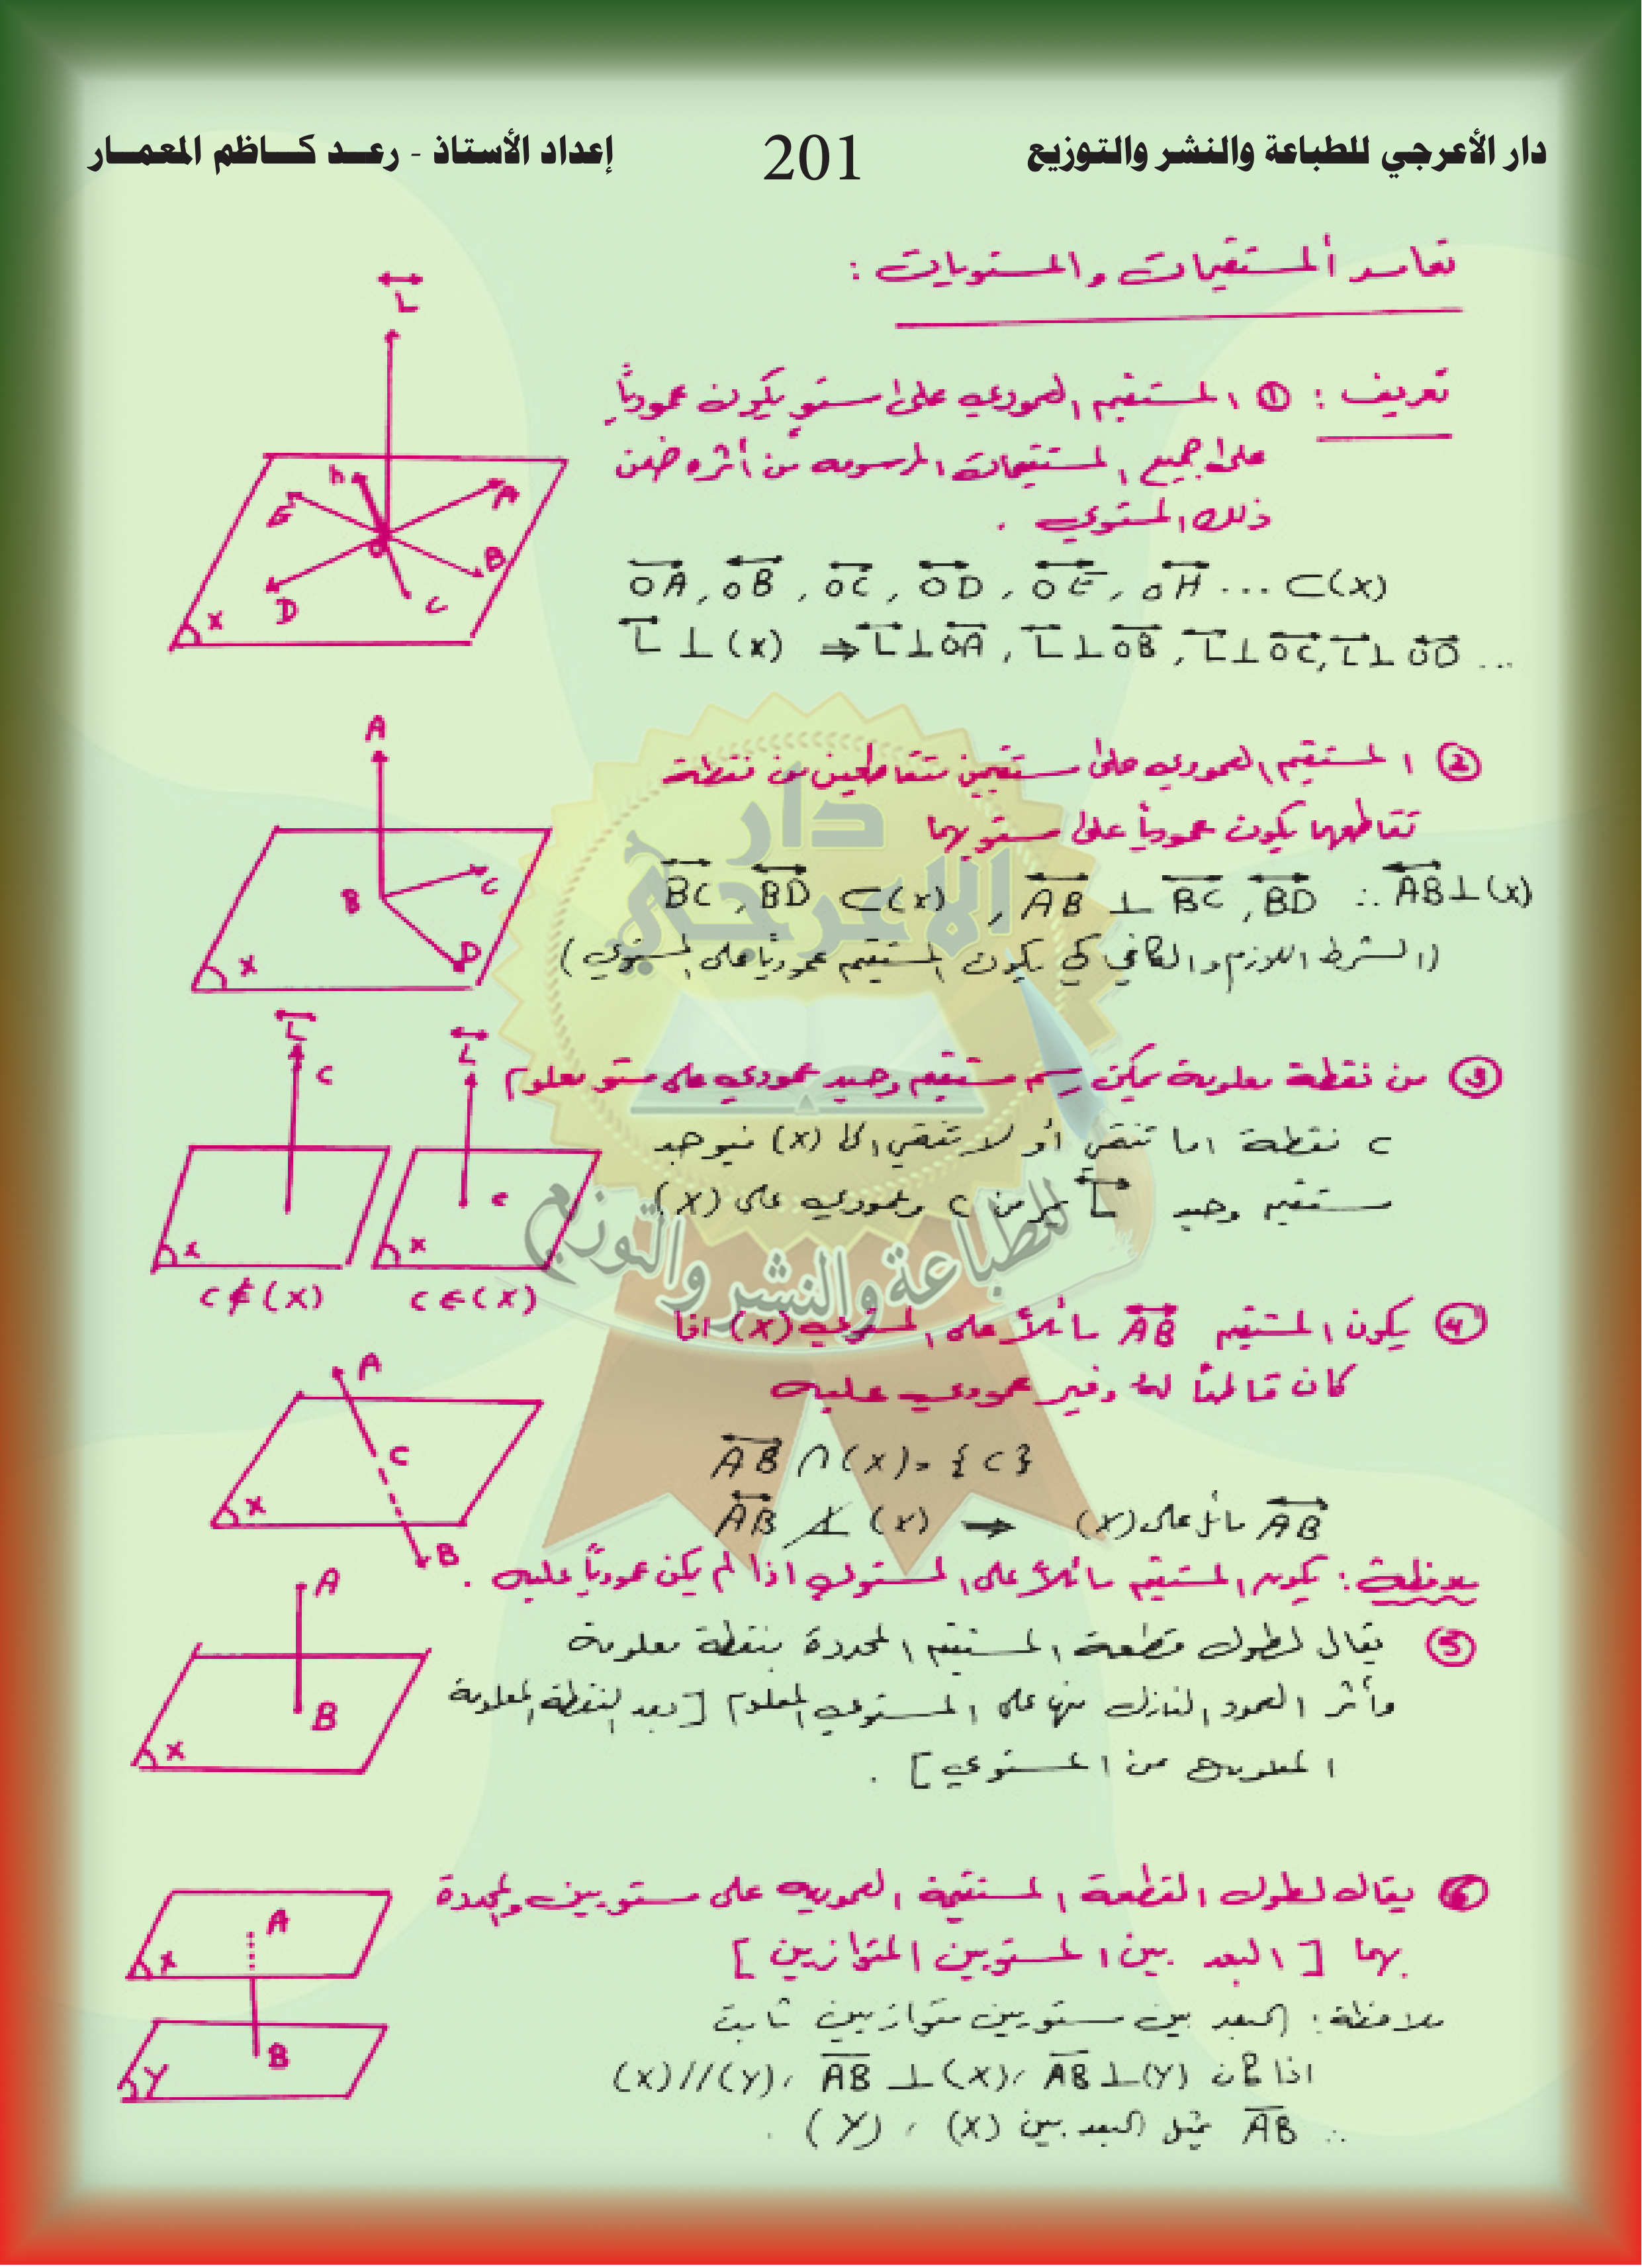 دار الأعرجي للطباعة والنشر والتوزيع 201 إعداد الأستاذ - رعـد كـاظم المعمـار
تعامد المستقيمات والمستويات :
تعريف : ① المستقيم العمودي على مستوٍ يكون عمودياً
على جميع المستقيمات المرسومه من أثره ضمن
ذلك المستوي .
OA , OB , OC , OD , OE , OH ... ⊂(X)
L ⊥ (X) ⇒ L⊥OA , L⊥OB , L⊥OC, L⊥OD ...
L
h
E
A
O
B
D
C
X
② المستقيم العمودي على مستقيمين متقاطعين من نقطة
تقاطعهما يكون عمودياً على مستويهما
BC , BD ⊂(X) , AB ⊥ BC , BD ∴ AB⊥(X)
(الشرط اللازم والكافي كي يكون المستقيم عمودياً على المستوي)
A
B
C
D
X
③ من نقطة معلومة يمكن رسم مستقيم وحيد عمودي على مستو معلوم
C نقطة اما تنتمي أو لا تنتمي الى (X) فيوجد
مستقيم وحيد L يمر من C وعمودي على (X)
L
C
X
C∉(X)
L
C
X
C∈(X)
④ يكون المستقيم AB مائلاً على المستوي (X) اذا
كان قاطعاً له وغير عمودي عليه
AB ∩(X) = {C}
AB ⊥̸ (X) → AB مائل على (X)
A
C
X
B
ملاحظة : يكون المستقيم مائلاً على المستوي اذا لم يكن عمودياً عليه .
⑤ يقال لطول قطعة المستقيم المحددة بنقطة معلومة
وأثر العمود النازل منها على المستوي المعلوم [بعد النقطة المعلومة
المعلومة عن المستوي] .
A
B
X
⑥ يقال لطول القطعة المستقيمة العموديه على مستويين والمحددة
بهما [البعد بين المستويين المتوازيين]
ملاحظة : البعد بين مستويين متوازيين ثابت
اذا كان (X)//(Y) ، AB ⊥(X) ، AB⊥(Y)
∴ AB يمثل البعد بين (X) ، (Y) .
A
X
B
Y
دار
الاعرجي
للطباعة والنشر والتوزيع